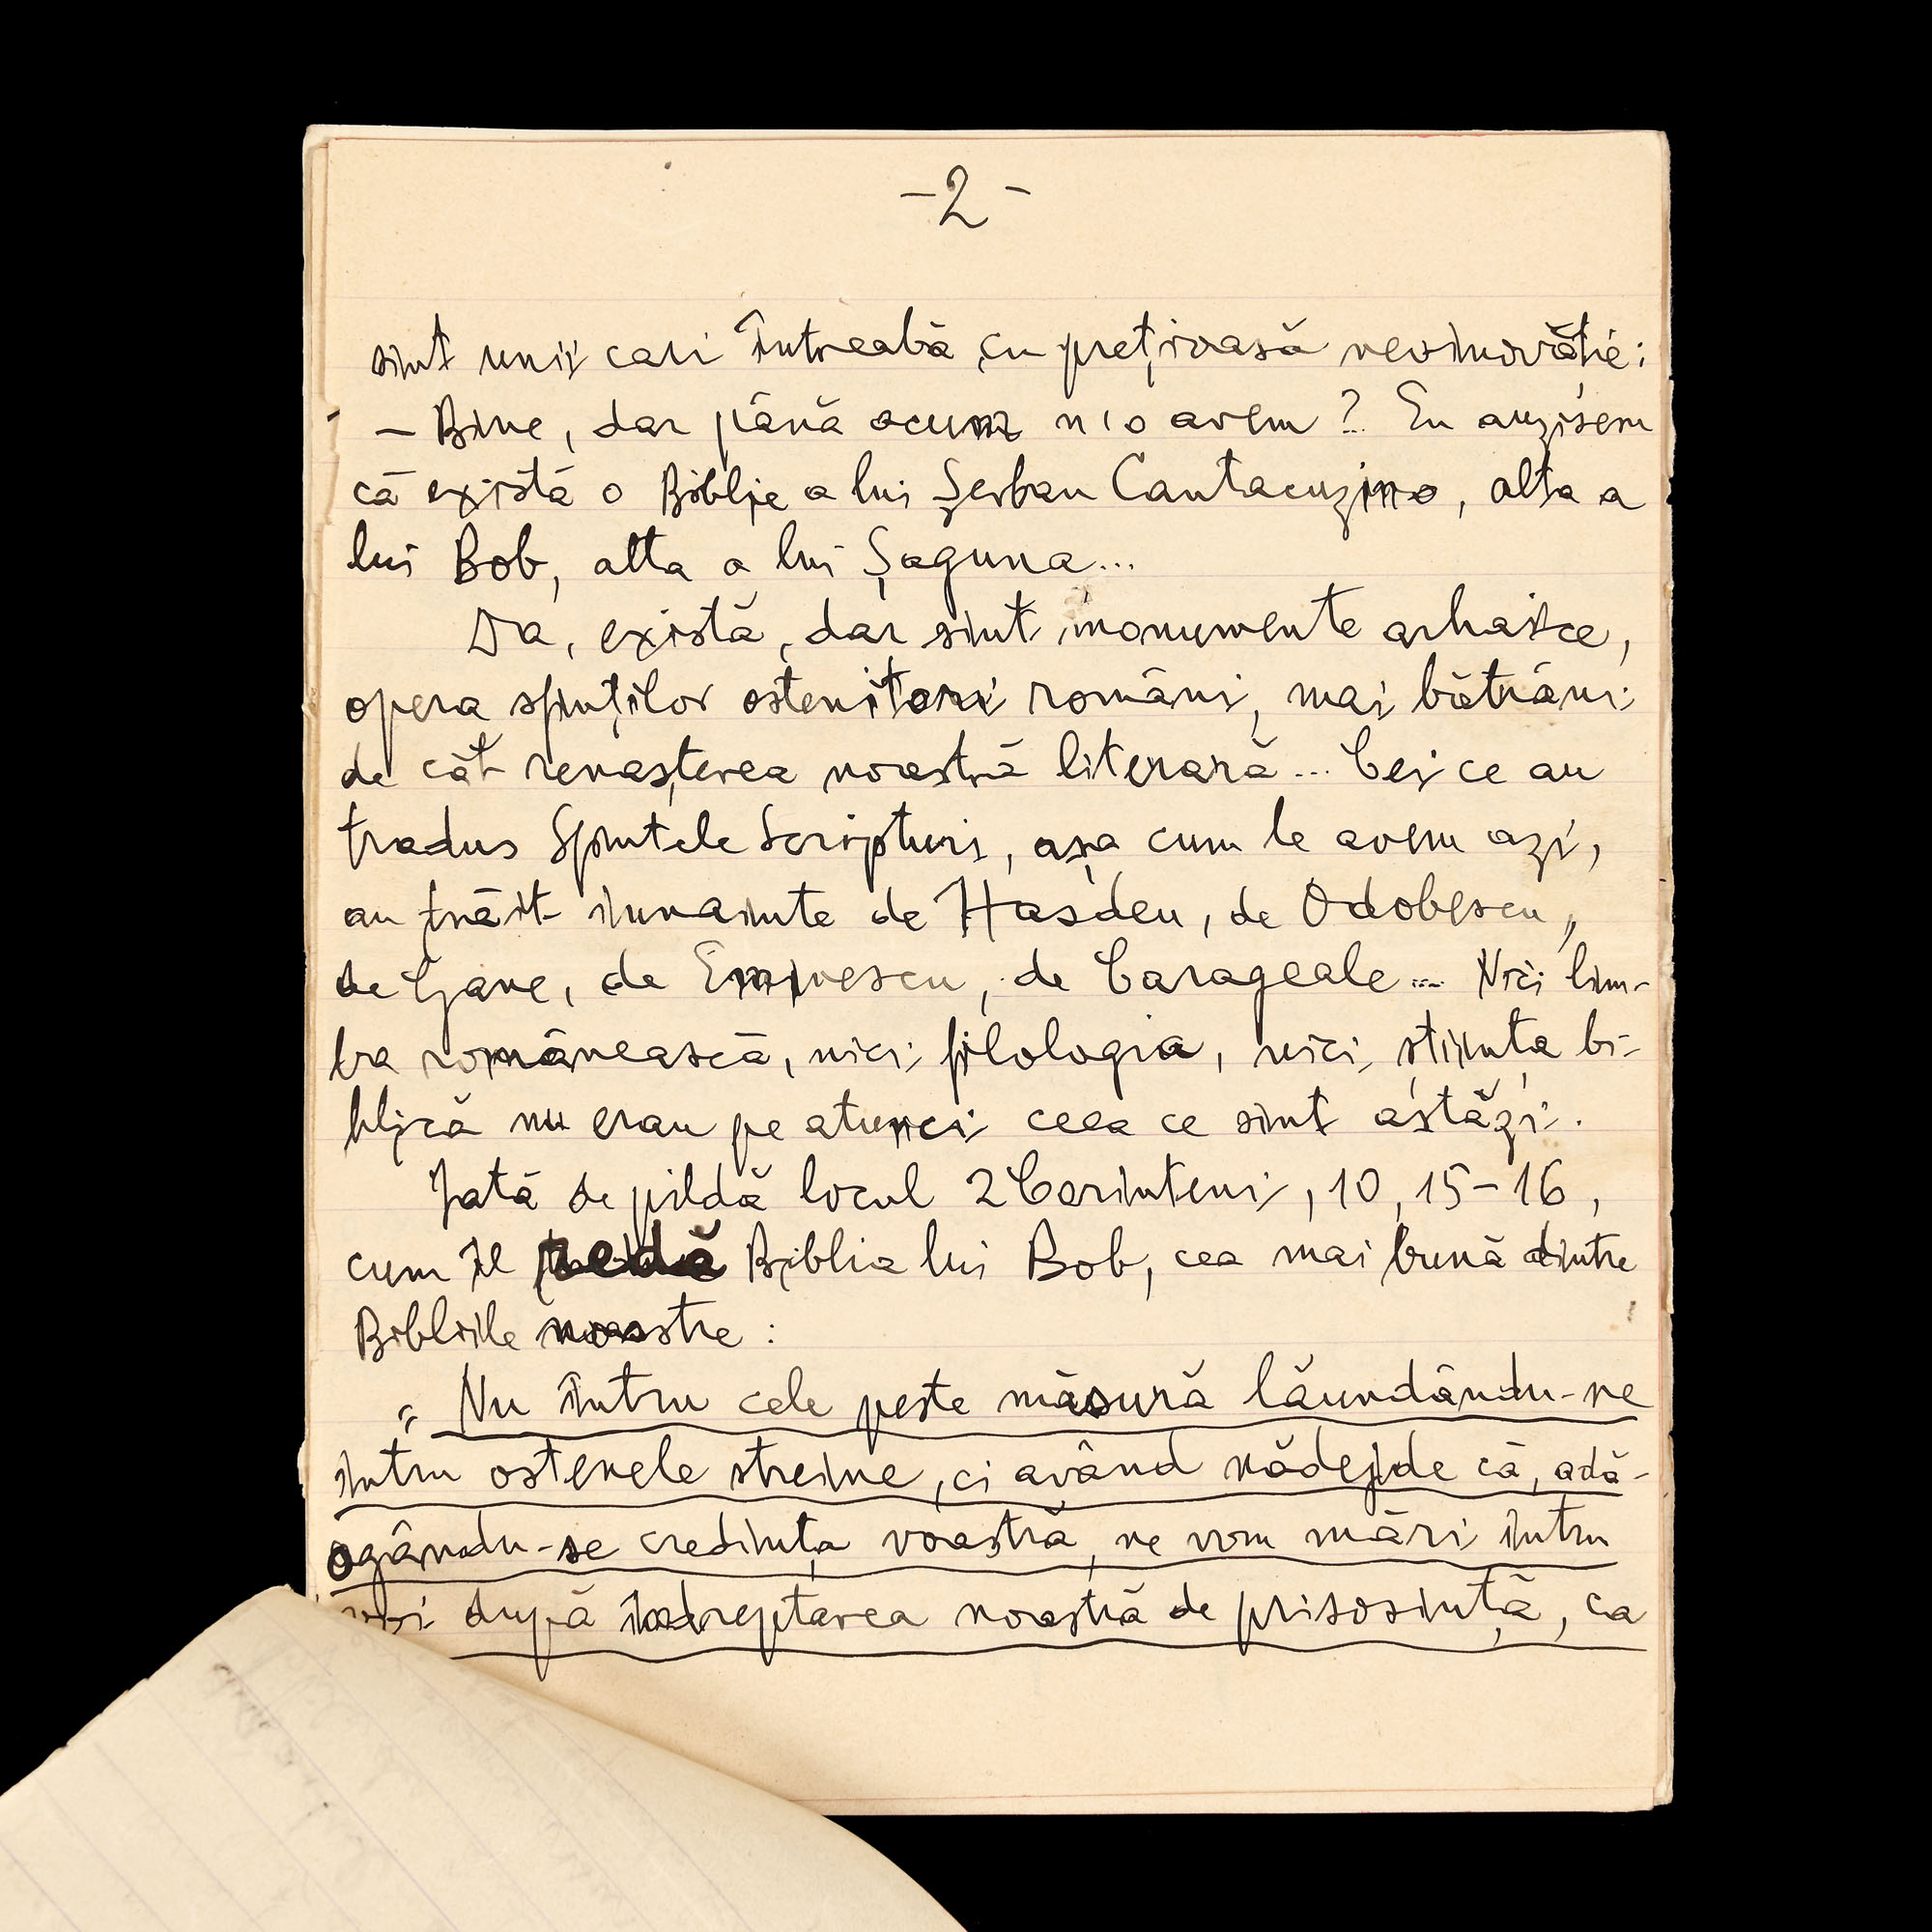 -2-
sînt unii cari întreabă cu prețioasă nevinovăție:
– Bine, dar până acum n'o avem? Eu auzisem
că există o Biblie a lui Șerban Cantacuzino, alta a
lui Bob, alta a lui Șaguna...
Da, există, dar sînt monumente arhaice,
opera sfinților ostenitori români, mai bătrâni
de cât renașterea noastră literară... Cei ce au
tradus Sfintele Scripturi, așa cum le avem azi,
au trăit înnainte de Hasdeu, de Odobescu,
de Gane, de Eminescu, de Carageale... Nici lim-
ba românească, nici filologia, nici știința bi-
blică nu erau pe atunci ceea ce sînt astăzi.
Iată de pildă locul 2 Corinteni, 10, 15–16,
cum îl redă Biblia lui Bob, cea mai bună dintre
Bibliile noastre:
„Nu întru cele peste măsură lăundându-ne
întru ostenele streine, ci având nădejde că, adă-
ogându-se credința voastră, ne vom mări întru
voi după îndreptarea noastră de prisosință, ca